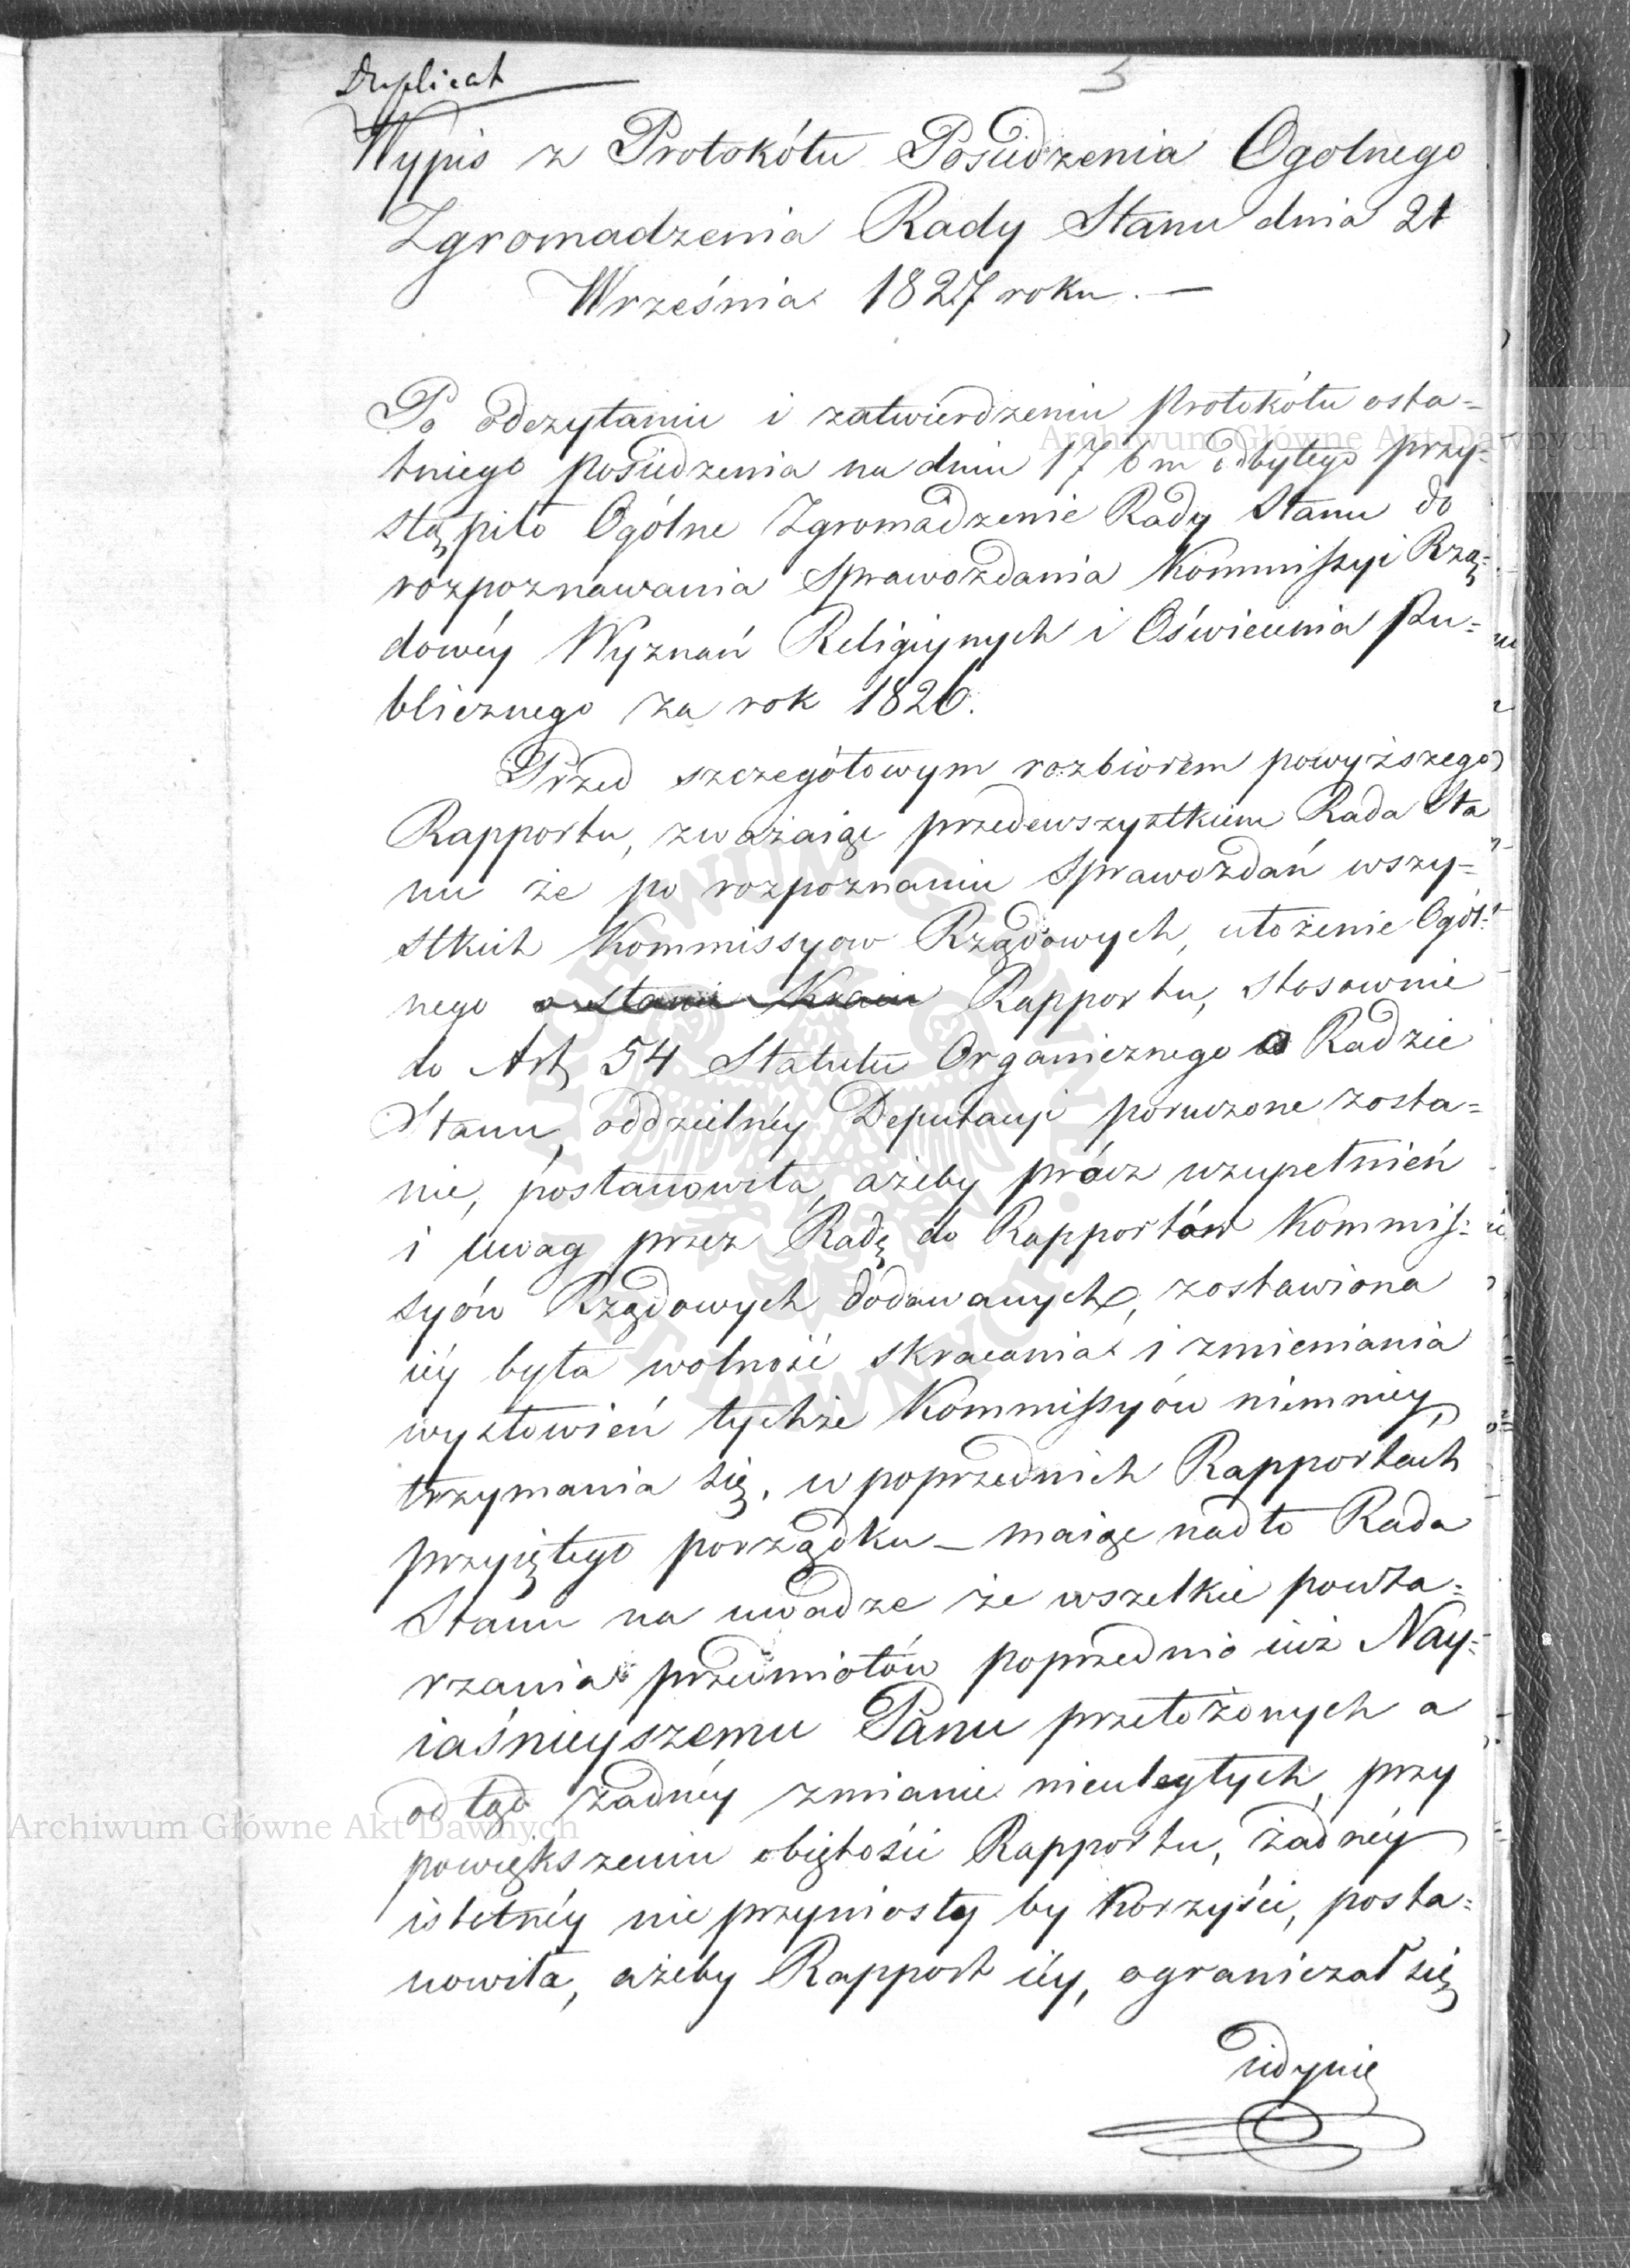 Duplicat
5
Wypis z Protokółu Posiedzenia Ogolnego
Zgromadzenia Rady Stanu dnia 21
Września 1827 roku. —
Po odczytaniu i zatwierdzeniu Protokółu osta=
tniego posiedzenia na dniu 17 b m odbytego przy=
stąpiło Ogólne Zgromadzenie Rady Stanu do
rozpoznawania Sprawozdania Kommissyi Rzą=
dowéy Wyznań Religiynych i Oświecenia Pu=
blicznego za rok 1826.
Przed szczegółowym rozbiorem powyższego
Rapportu, zważaiąc przedewszystkiem Rada Sta
nu że po rozpoznaniu Sprawozdań wszy=
stkich Kommissyow Rządowych, ułożenie Ogól=
nego o Stanie Kraiu Rapportu, stosownie
do Art, 54 Statutu Organicznego o Radzie
Stanu, oddzielnéy Deputacyi poruczone zosta=
nie, postanowiła, ażeby prócz uzupełnień
i uwag przez Radę do Rapportów Kommis=
syów Rządowych dodawanych, zostawiona
iéy była wolność skracania i zmieniania
wysłowień tychże Kommissyów niemniey,
trzymania się, w poprzednich Rapportach
przyiętego porządku — maiąc nadto Rada
Stanu na uwadze że wszelkie powta=
rzania przedmiotów poprzednio iuż Nay=
iaśnieyszemu Panu przełożonych a
odtąd żadnéy zmianie nieuległych, przy
powiększeniu obiętości Rapportu, żadnéy
istotnéy nie przyniosły by korzyści, posta=
nowiła, ażeby Rapport iéy, ograniczał się
iedynie
Archiwum Główne Akt Dawnych
Archiwum Główne Akt Dawnych
ARCHIWUM GŁÓWNE AKT DAWNYCH